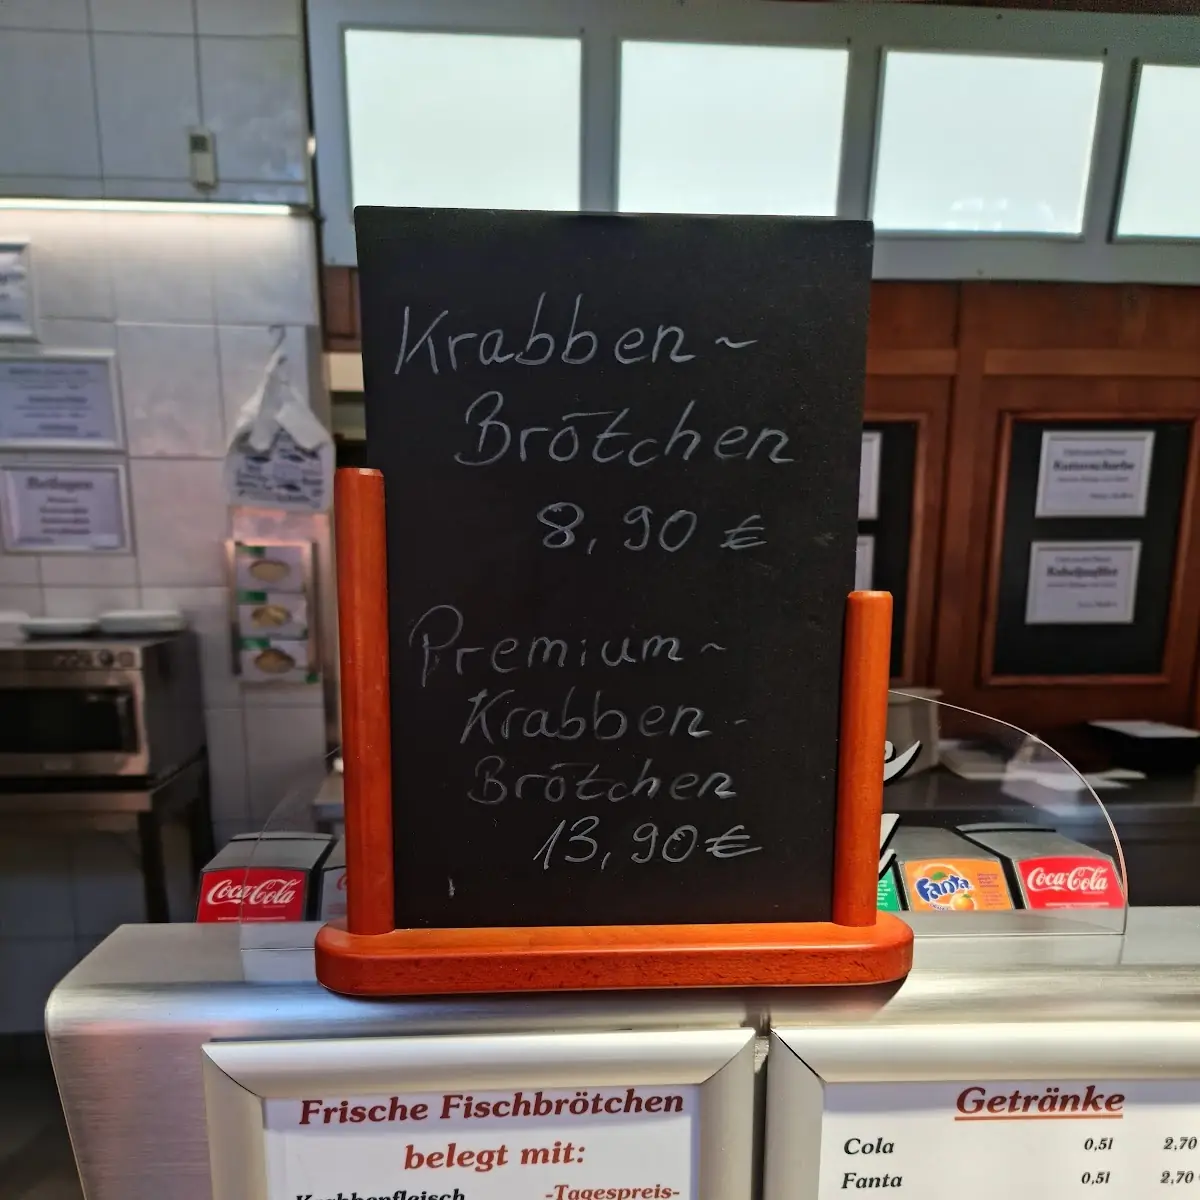 Krabben~
Brötchen
8,90 €
Premium~
Krabben-
Brötchen
13,90 €
Coca-Cola
Fanta
Coca-Cola
Frische Fischbrötchen
belegt mit:
Krabbenfleisch -Tagespreis-
Getränke
Cola 0,5l 2,70
Fanta 0,5l 2,70